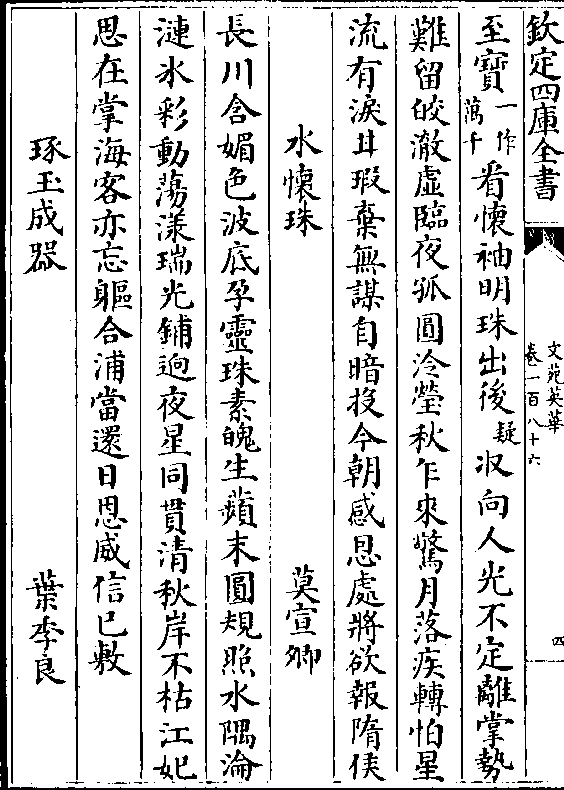 欽定四庫全書
文苑英華
卷一百八十六
四
至寶一作萬千看懷袖明珠出後疑収向人光不定離掌勢
難留皎澈虚臨夜孤圓冷瑩秋乍來驚月落疾轉怕星
流有淚甘瑕棄無謀自暗投今朝感恩處將欲報隋侯
水懷珠
莫宣卿
長川含媚色波底孕靈珠素魄生蘋末圓規照水隅淪
漣氷彩動蕩漾瑞光鋪逈夜星同貫清秋岸不枯江妃
思在掌海客亦忘軀合浦當還日恩威信已敷
琢玉成器
葉季良